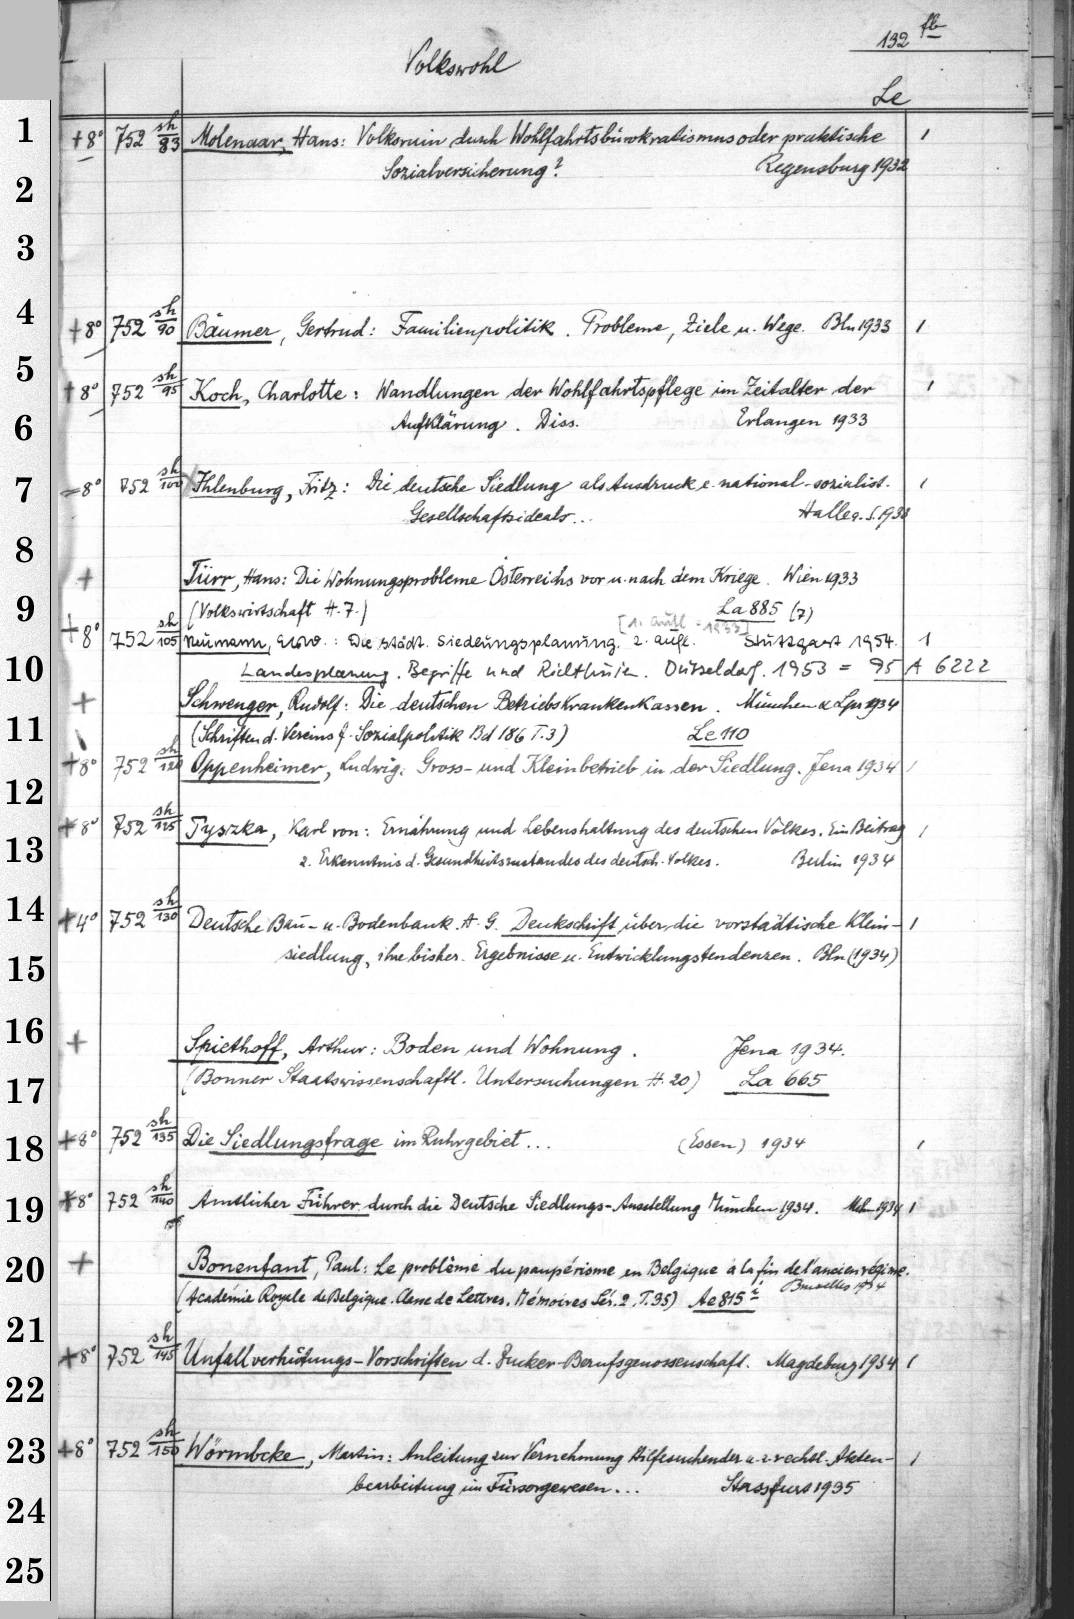 132 fb
Volkswohl
Le
1 +8° 752 sh/83 Molenaar, Hans: Volksruin durch Wohlfahrtsbürokratismus oder praktische 1
2 Sozialversicherung? Regensburg 1932
3
4 +8° 752 sh/90 Bäumer, Gertrud: Familienpolitik. Probleme, Ziele u. Wege. Bln 1933 1
5 +8° 752 sh/95 Koch, Charlotte: Wandlungen der Wohlfahrtspflege im Zeitalter der 1
6 Aufklärung. Diss. Erlangen 1933
7 =8° 752 sh/100 Ihlenburg, Fritz: Die deutsche Siedlung als Ausdruck e. national-sozialist. 1
Gesellschaftsideals... Halle a. S. 1933
8
+ Türr, Hans: Die Wohnungsprobleme Österreichs vor u. nach dem Kriege. Wien 1933
9 (Volkswirtschaft H. 7.) La 885 (7)
[1. Aufl. = 1953]
+8° 752 sh/105 Neumann, Erw.: Die städt. Siedlungsplanung. 2. Aufl. Stuttgart 1954. 1
10 Landesplanung. Begriffe und Richtlinien. Düsseldorf. 1953 = 95 A 6222
+ Schwenger, Rudolf: Die deutschen Betriebskrankenkassen. München & Lpz 1934
11 (Schriften d. Vereins f. Sozialpolitik Bd 186 T. 3) Le 110
+8° 752 sh/120 Oppenheimer, Ludwig: Gross- und Kleinbetrieb in der Siedlung. Jena 1934 1
12
+8° 752 sh/125 Tyszka, Karl von: Ernährung und Lebenshaltung des deutschen Volkes. Ein Beitrag 1
13 z. Erkenntnis d. Gesundheitszustandes des deutsch. Volkes. Berlin 1934
14 +4° 752 sh/130 Deutsche Bau- u. Bodenbank A. G. Denkschrift über die vorstädtische Klein- 1
15 siedlung, ihre bisher. Ergebnisse u. Entwicklungstendenzen. Bln (1934)
16 + Spiethoff, Arthur: Boden und Wohnung. Jena 1934.
17 (Bonner Staatswissenschaftl. Untersuchungen H. 20) La 665
18 +8° 752 sh/135 Die Siedlungsfrage im Ruhrgebiet... (Essen) 1934 1
19 +8° 752 sh/140 Amtlicher Führer durch die Deutsche Siedlungs-Ausstellung München 1934. Mchn 1934 1
20 + Bonenfant, Paul: Le problème du paupérisme en Belgique à la fin de l'ancien régime.
Bruxelles 1934
(Académie Royale de Belgique. Classe de Lettres. Mémoires Sér. 2, T. 35) Ae 815
21 +8° 752 sh/145 Unfallverhütungs-Vorschriften d. Zucker-Berufsgenossenschaft. Magdeburg 1934 1
22
23 +8° 752 sh/150 Wörmbcke, Martin: Anleitung zur Vernehmung Hilfesuchender u. z. rechtl. Akten- 1
bearbeitung im Fürsorgewesen... Stassfurt 1935
24
25